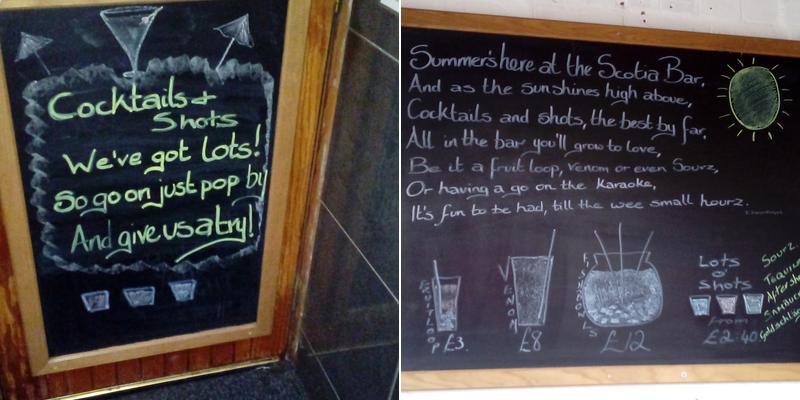 Cocktails &
Shots
We've got lots!
So go on just pop by
And give us a try!
Summer's here at the Scotia Bar,
And as the sun shines high above,
Cocktails and shots, the best by far,
All in the bar you'll grow to love,
Be it a fruit loop, venom or even Sourz,
Or having a go on the karaoke,
It's fun to be had, till the wee small hourz.
FRUIT LOOP
£3.
VENOM
£8
FISHBOWLS
£12
Lots
o'
Shots
From
£2.40
Sourz.
Tequila
Aftershock
Sambuca
Goldschlager